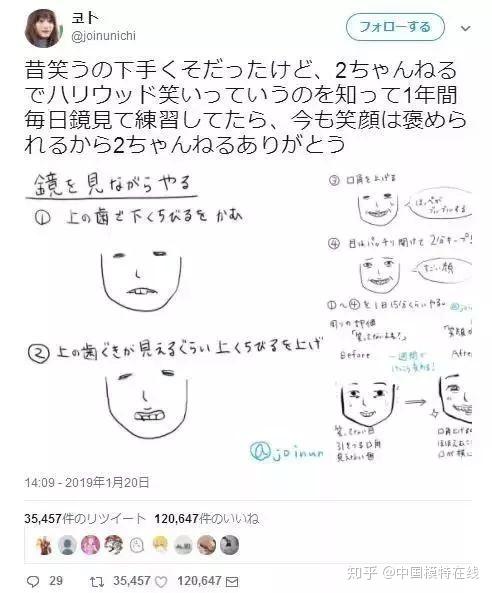 コト
@joinunichi
フォローする
昔笑うの下手くそだったけど、2ちゃんねる
でハリウッド笑いっていうのを知って1年間
毎日鏡見て練習してたら、今も笑顔は褒めら
れるから2ちゃんねるありがとう
鏡を見ながらやる
① 上の歯で下くちびるをかむ
② 上の歯ぐきが見えるぐらい上くちびるを上げ
@joinun
③ 口角を上げる
④ 目はパッチリ開けて2分キープ!
すごい顔
①~④を1日15分くらいやる
@join
周りの評価
「笑ってないよね?」
Before
一週間で
After
笑ってない目
引きつる口角
見えない歯
口角上げ
14:09 - 2019年1月20日
35,457件のリツイート 120,647件のいいね
29 35,457 120,647
知乎 @中国模特在线